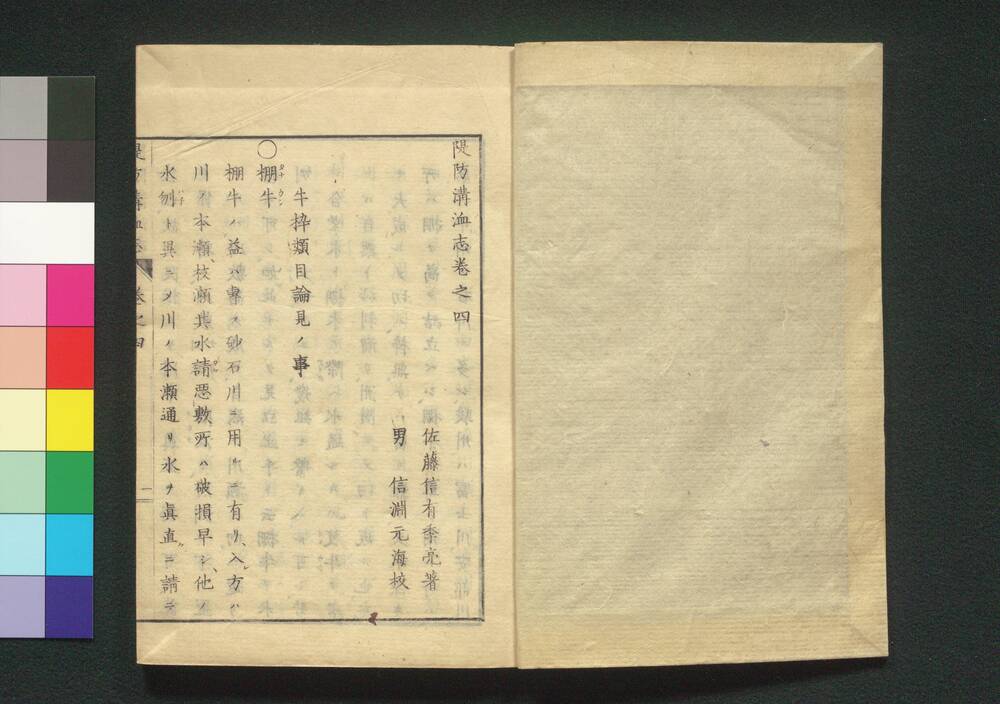 隄防溝洫志巻之四
佐藤信有季亮著
男 信淵元海校
牛枠類目論見ノ事
○棚牛
棚牛ハ益ハ專ラ砂石川ニ用ルニ有リ、入方ハ
川ノ本瀬、枝瀬共水請悪敷所ハ破損早シ、他ノ
水刎ト異ニシテ川ノ本瀬通リ水ヲ眞直ニ請テ
巻之四
一